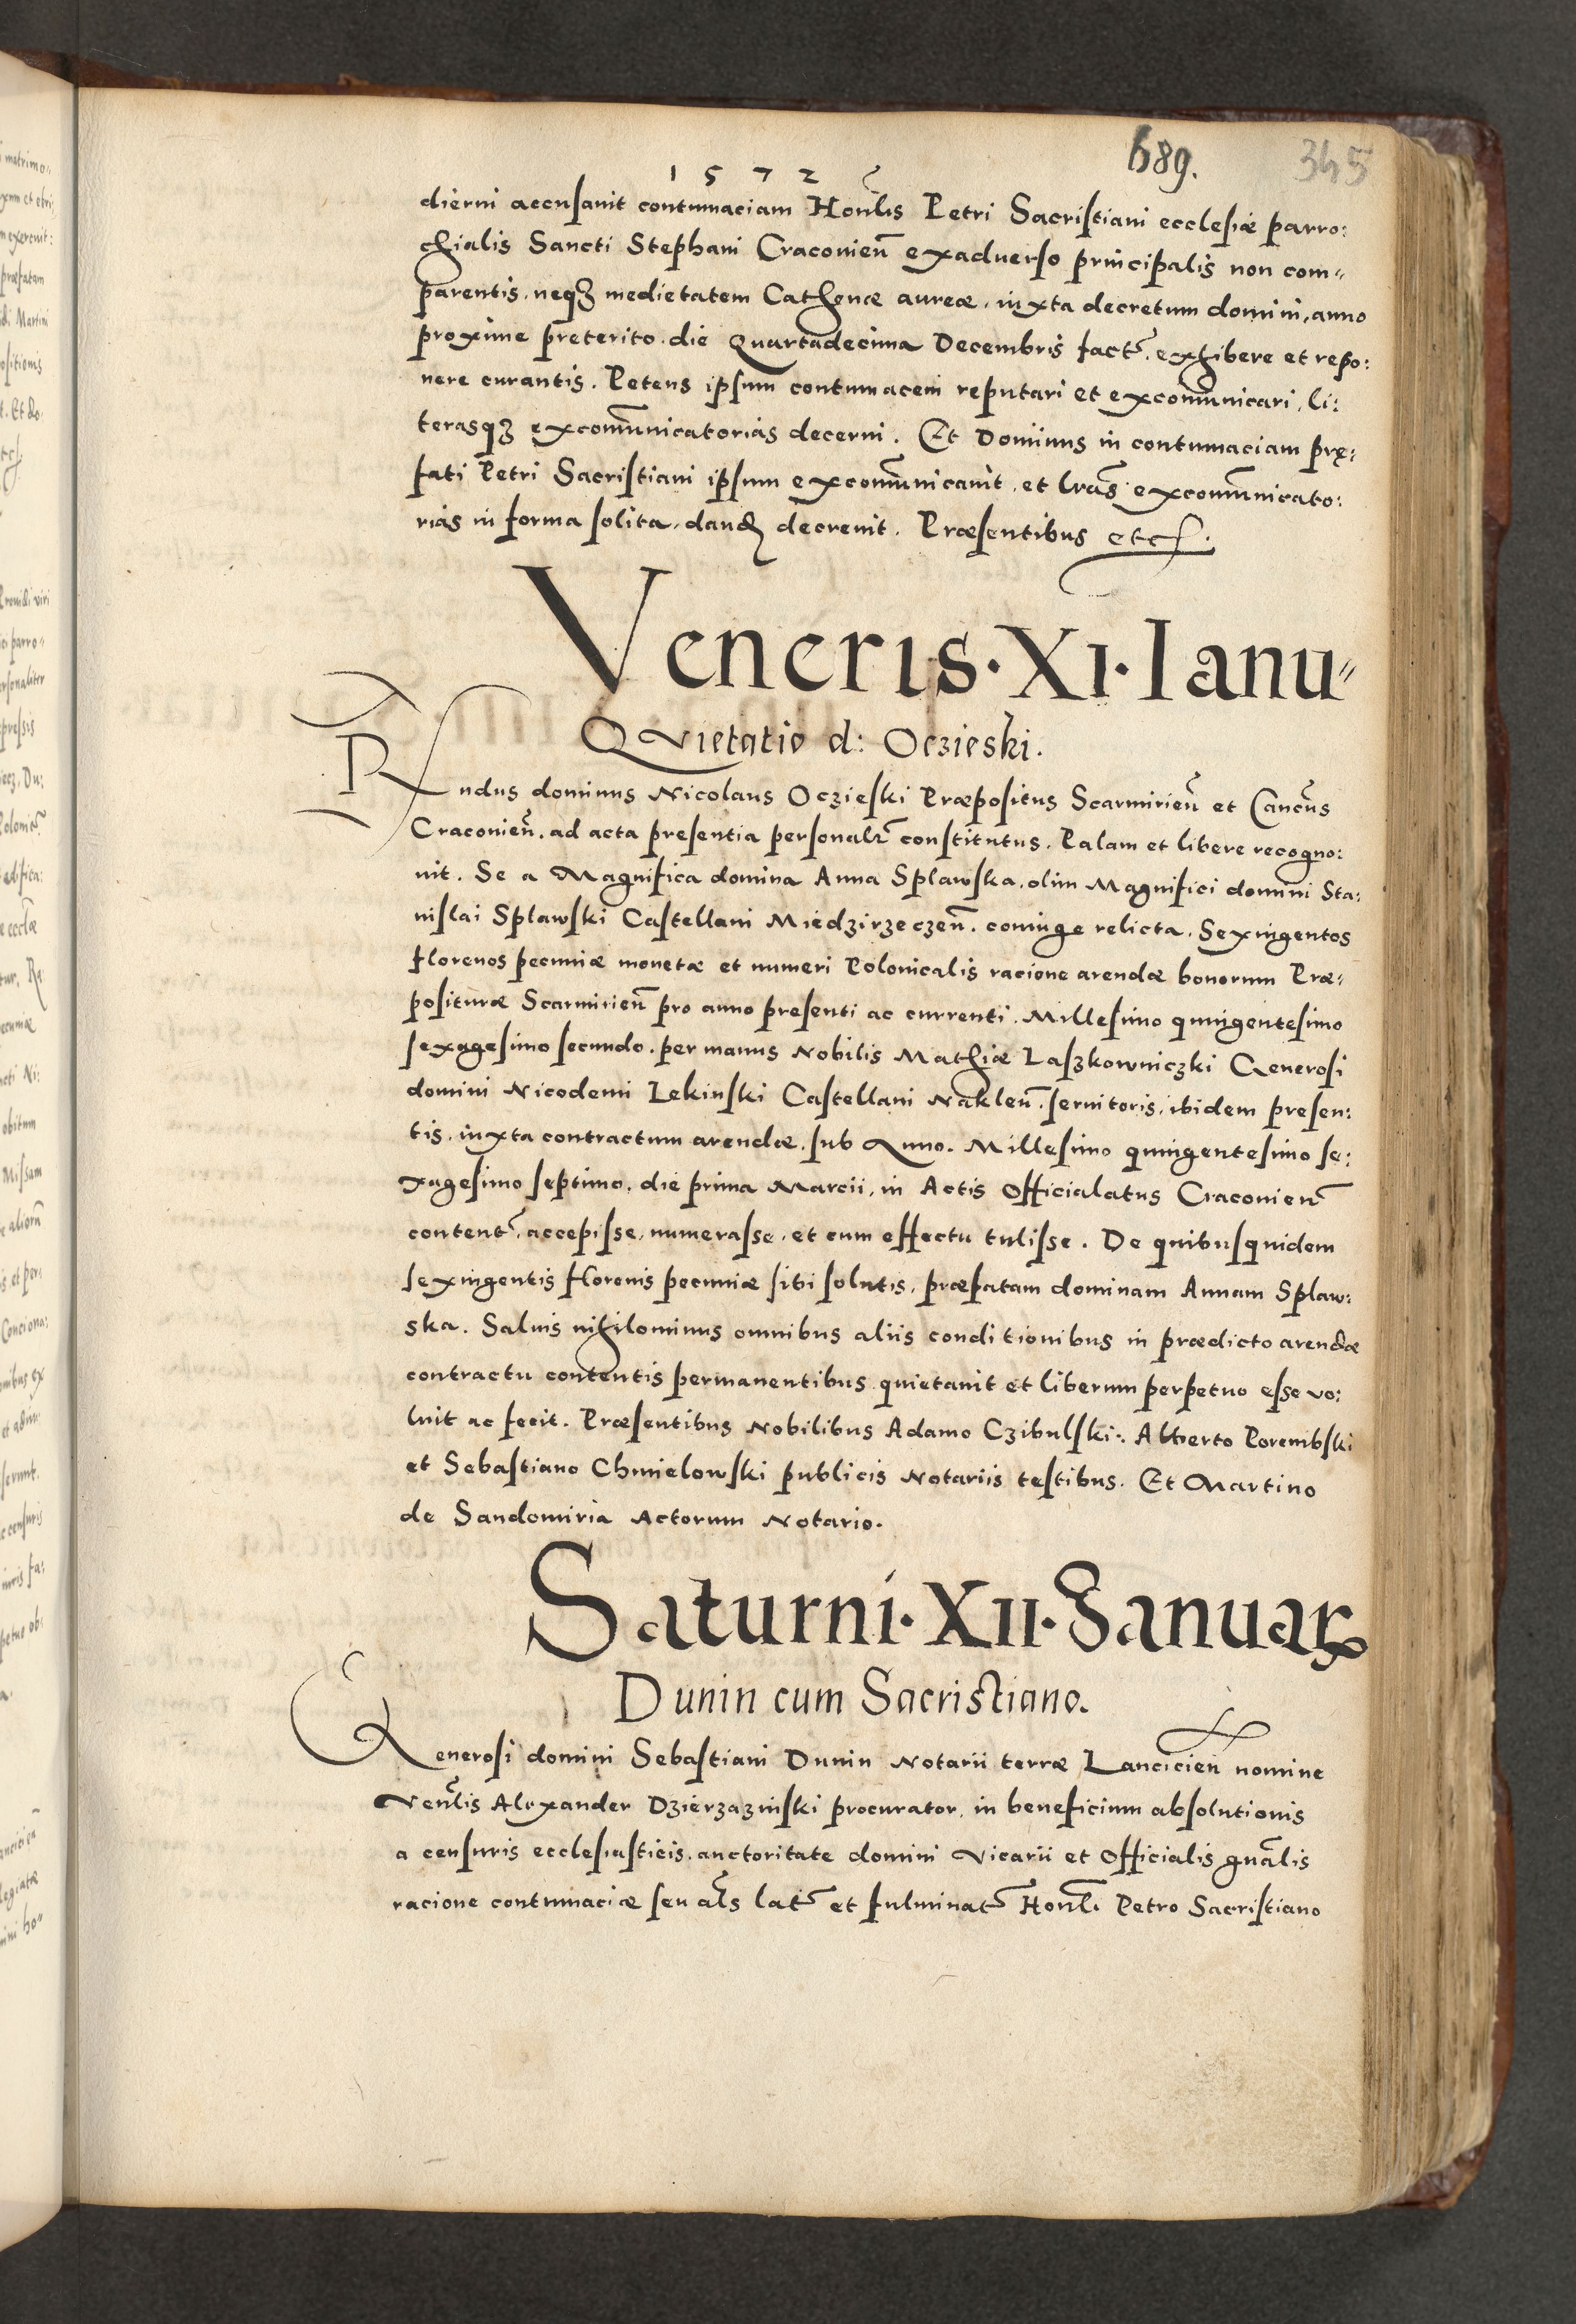 689. 345
1572
dierni accusauit contumaciam Hon̄lis Petri Sacristiani ecclesiæ parro:
chialis Sancti Stephani Cracouien̄ exaduerso principalis non com=
parentis, neqꝫ medietatem Cathenæ aureæ, iuxta decretum domini, anno
proxime preterito die Quartadecima Decembris fact̄, exhibere et repo:
nere curantis. Petens ipsum contumacem reputari et excom̄unicari, li:
terasqꝫ excom̄unicatorias decerni. Et Dominus in contumaciam prę:
fati Petri Sacristiani ipsum excom̄unicauit, et lrās excom̄unicato:
rias in forma solita, dand decreuit. Præsentibus etc.
Veneris · XI · Ianu=
Quietatio d: Oczieski.
Rndus dominus Nicolaus Oczieski Præpositus Scarmirien̄ et Canc̄us
Cracouien̄, ad acta presentia personalr̄ constitutus. Palam et libere recogno:
uit. Se a Magnifica domina Anna Splawska, olim Magnifici domini Sta:
nislai Splawski Castellani Miedzirzeczen̄, coniuge relicta, Sexingentos
florenos pecuniæ monetæ et numeri Polonicalis racione arendæ bonorum Præ=
posituræ Scarmirien̄ pro anno presenti ac currenti, Millesimo quingentesimo
sexagesimo secundo, per manus Nobilis Mathiæ Laszkowniczki Generosi
domini Nicodemi Lekinski Castellani Naklen̄, seruitoris, ibidem presen:
tis, iuxta contractum arendæ, sub Anno. Millesimo quingentesimo se:
xagesimo septimo, die prima Marcii, in Actis Officialatus Cracouien̄
content̄, accepisse, numerasse, et cum effectu tulisse. De quibusquidem
sexingentis florenis pecuniæ sibi solutis, præpatam dominam Annam Splaw:
ska. Saluis nihilominus omnibus aliis conditionibus in prædicto arendæ
contractu contentis permanentibus quietauit et liberum perpetuo esse vo:
luit ac fecit. Præsentibus Nobilibus Adamo Czibulski. Alberto Porembski
et Sebastiano Chmielowski publicis Notariis testibus. Et Martino
de Sandomiria Actorum Notario.
Saturni · XII · Januarꝝ
Dunin cum Sacristiano.
Generosi domini Sebastiani Dunin Notarii terræ Lancicien̄ nomine
Ven̄lis Alexander Dzierzazinski procurator, in beneficium absolutionis
a censuris ecclesiasticis, auctoritate domini Vicarii et Officialis gn̄alis
racione contumaciæ seu al̄s lat̄ et fulminat̄ Hon̄l. Petro Sacristiano